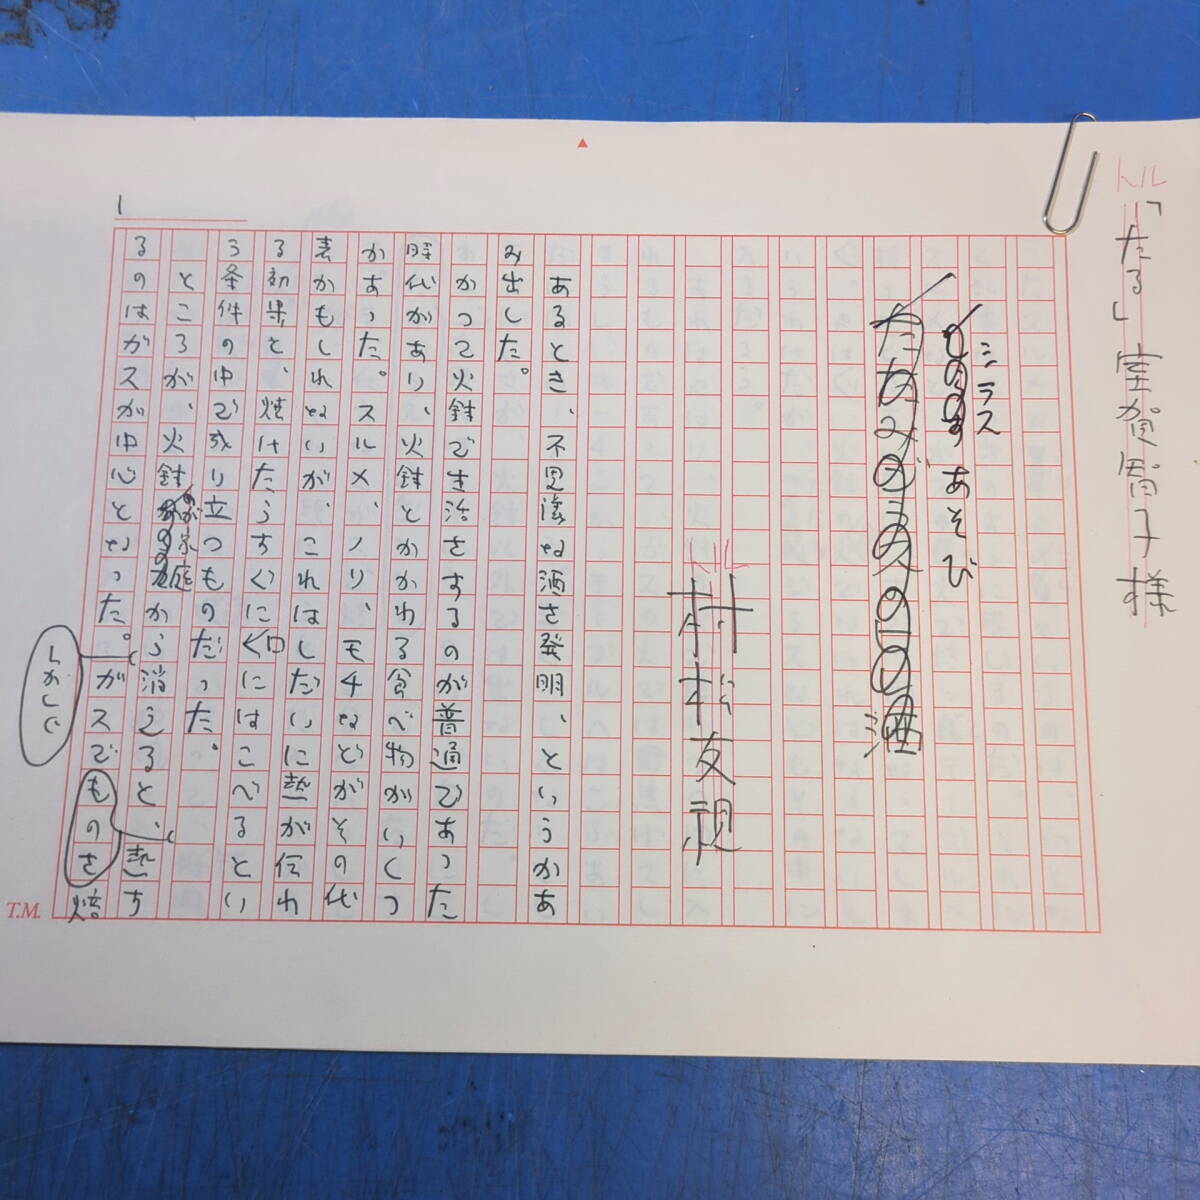 トル
「たる」室賀智子様
シラス
あそび
酒
トル
村松友視
あるとき、不思議な酒を発明、というかあ
み出した。
かつて火鉢で生活をするのが普通であった
時代があり、火鉢とかかわる食べ物がいくつ
かあった。スルメ、ノリ、モチなどがその代
表かもしれないが、これはしだいに熱が伝わ
る効果と、焼けたらすぐに口にはこべるとい
う条件の中で成り立つものだった。
ところが、火鉢が家庭から消えると、熱す
るのはガスが中心となった。ガスでものを焙
しかし
1
T.M.